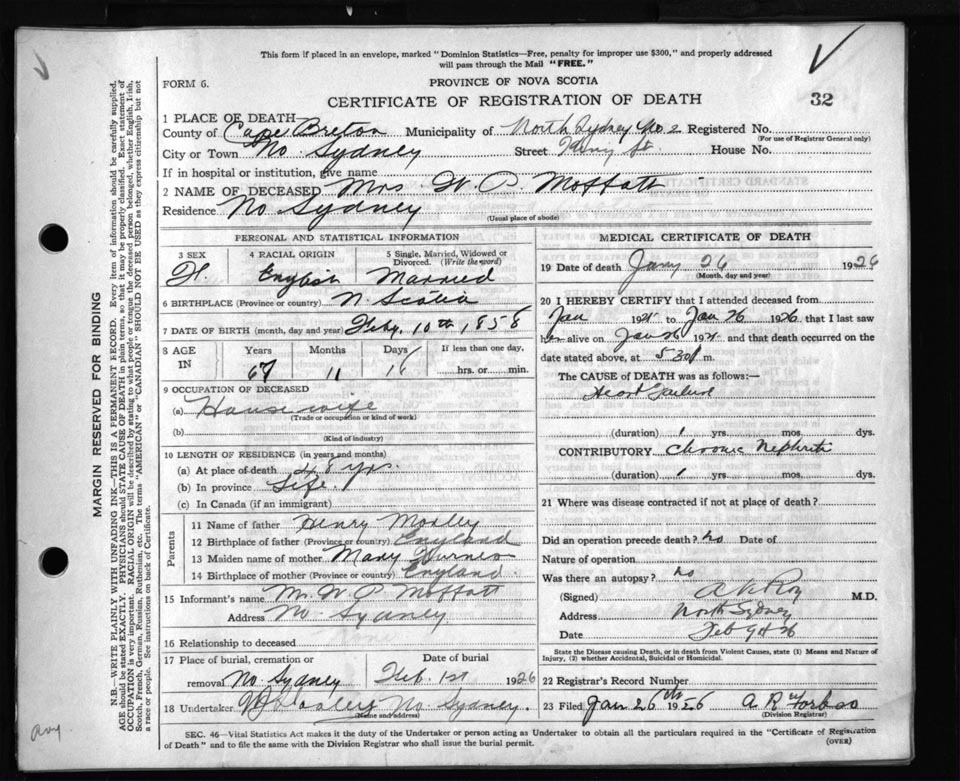 This form if placed in an envelope, marked "Dominion Statistics—Free, penalty for improper use $300," and properly addressed
will pass through the Mail "FREE."
FORM 6.
PROVINCE OF NOVA SCOTIA
CERTIFICATE OF REGISTRATION OF DEATH
32
1 PLACE OF DEATH
County of Cape Breton Municipality of North Sydney No 2 Registered No.
(For use of Registrar General only)
City or Town No. Sydney Street St. House No.
If in hospital or institution, give name
2 NAME OF DECEASED Mrs. W. P. Moffatt
Residence No Sydney
(Usual place of abode)
PERSONAL AND STATISTICAL INFORMATION
3 SEX 4 RACIAL ORIGIN 5 Single, Married, Widowed or Divorced. (Write the word)
F. English Married
6 BIRTHPLACE (Province or country) N. Scotia
7 DATE OF BIRTH (month, day and year) Feby. 10th, 1858
8 AGE IN Years Months Days If less than one day,
67 11 16 hrs. or min.
9 OCCUPATION OF DECEASED
(a) House wife
(Trade or occupation or kind of work)
(b)
(Kind of industry)
10 LENGTH OF RESIDENCE (in years and months)
(a) At place of death 48 yrs.
(b) In province Life
(c) In Canada (if an immigrant)
Parents
11 Name of father Henry
12 Birthplace of father (Province or country) England
13 Maiden name of mother Mary
14 Birthplace of mother (Province or country) England
15 Informant's name Mr. W P Moffatt
Address No Sydney
16 Relationship to deceased
17 Place of burial, cremation or removal No. Sydney Date of burial Feb. 1st 1926
18 Undertaker No. Sydney.
(Name and address)
MEDICAL CERTIFICATE OF DEATH
19 Date of death Jany 26 1926
(Month, day and year)
20 I HEREBY CERTIFY that I attended deceased from
Jan 192 to Jan 26 1926, that I last saw
her alive on Jan 26 192 and that death occurred on the
date stated above, at 5 30 m.
The CAUSE of DEATH was as follows:—
Heart Failure
(duration) 1 yrs. mos. dys.
CONTRIBUTORY Chronic Nephritis
(duration) 1 yrs. mos. dys.
21 Where was disease contracted if not at place of death?
Did an operation precede death? No Date of
Nature of operation
Was there an autopsy? No
(Signed) Roy M.D.
Address North Sydney
Date Feb 9th 26
State the Disease causing Death, or in death from Violent Causes, state (1) Means and Nature of
Injury, (2) whether Accidental, Suicidal or Homicidal.
22 Registrar's Record Number
23 Filed Jan 26th 1926 A R Forbes
(Division Registrar)
SEC. 46—Vital Statistics Act makes it the duty of the Undertaker or person acting as Undertaker to obtain all the particulars required in the "Certificate of Registration
of Death" and to file the same with the Division Registrar who shall issue the burial permit.
(OVER)
MARGIN RESERVED FOR BINDING
N.B.—WRITE PLAINLY WITH UNFADING INK—THIS IS A PERMANENT RECORD. Every item of information should be carefully supplied.
AGE should be stated EXACTLY. PHYSICIANS should STATE CAUSE OF DEATH in plain terms, so that it may be properly classified. Exact statement of
OCCUPATION is very important. RACIAL ORIGIN will be described by stating to what people or tongue the deceased person belonged, whether English, Irish,
Scotch, French, German, Russian, Ruthenian, etc. The terms "AMERICAN" or "CANADIAN" SHOULD NOT BE USED as they express citizenship but not
a race or people. See instructions on back of Certificate.